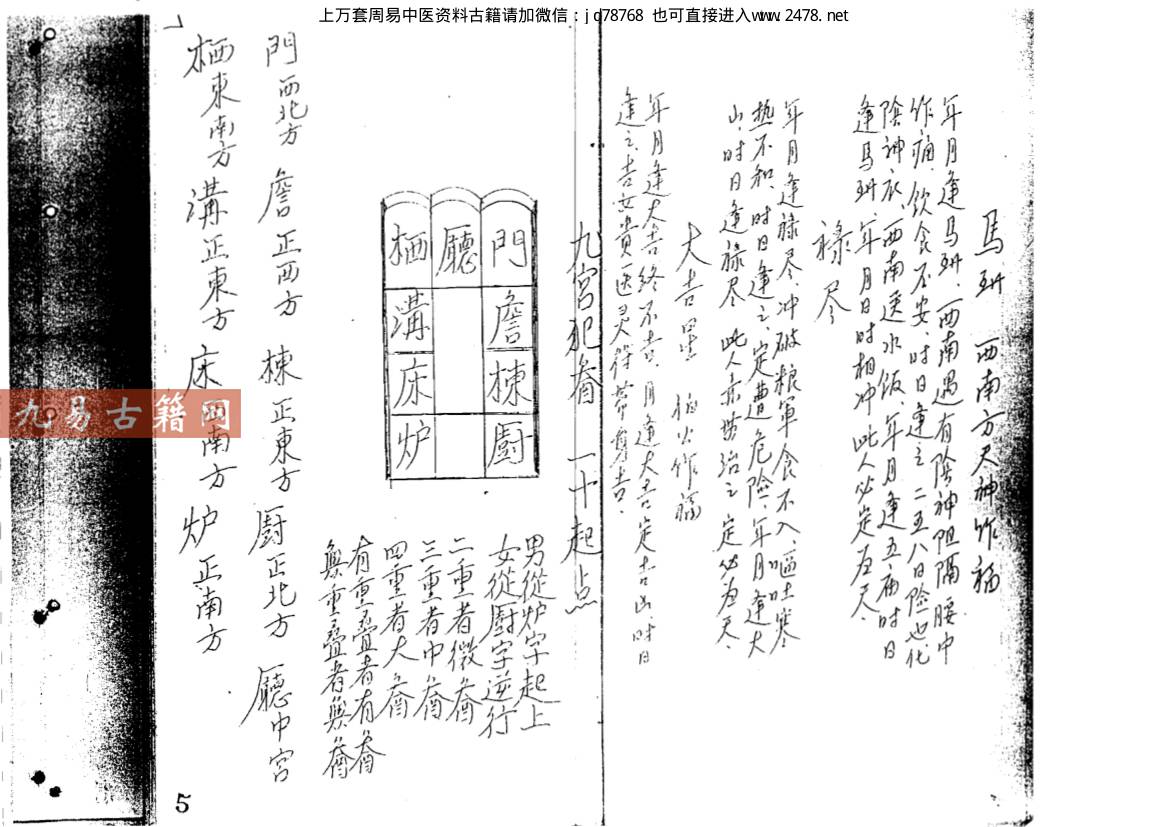 上万套周易中医资料古籍请加微信：jq78768 也可直接进入www.2478.net
馬 西南方天神作禍
年月逢馬 西南遇有陰神阻隔腰中
作痛、飲食不安、时日逢之、二五八日险也化
陰神衣、西南送水饭、年月逢五 时日
逢馬 、年月日时相冲 此人必定为天、
祿尽
年月逢祿尽、冲破粮軍食不入、嘔吐寒
热不和、时日逢之、定遭危险、年月逢大
山、时日逢祿尽 此人 治之 定必为天、
大吉星 作福
年月逢大吉終不吉、月逢大吉定吉山、时日
逢之、吉 貴医灵符带身吉．
九宮犯 一十起点
男從炉字起上
女從廚字逆行
二重者微
三重者中
四重者大
有重疊者有
無重疊者無
門 廳 栖
詹 溝
棟 床
廚 炉
門西北方 詹正西方 棟正東方 廚正北方 廳中宮
栖東南方 溝正東方 床西南方 炉正南方
九易古籍网
5